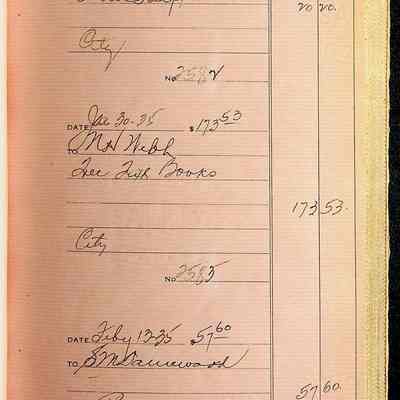 20 20.
City
No 2582
DATE Jan 30-35 $173 53
TO M H Webb
Tec Books
173 53.
City
No 2583
DATE Feby 13-35 $57 60
TO S M
57 60.